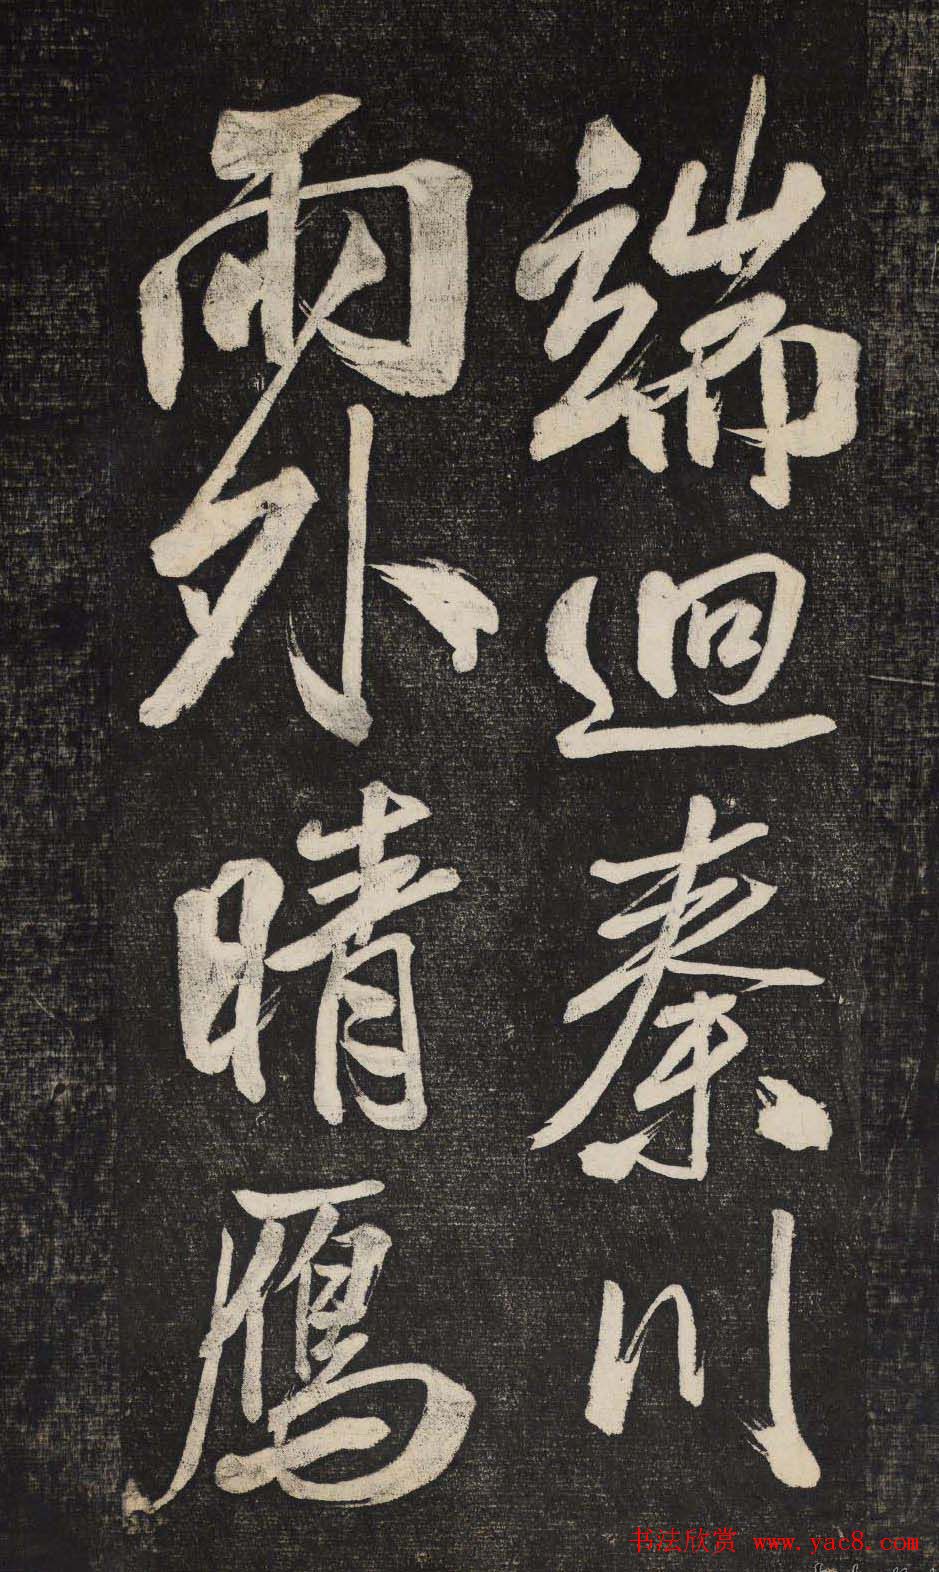 端迥秦川
雨外晴鴈
书法欣赏 www.yac8.com